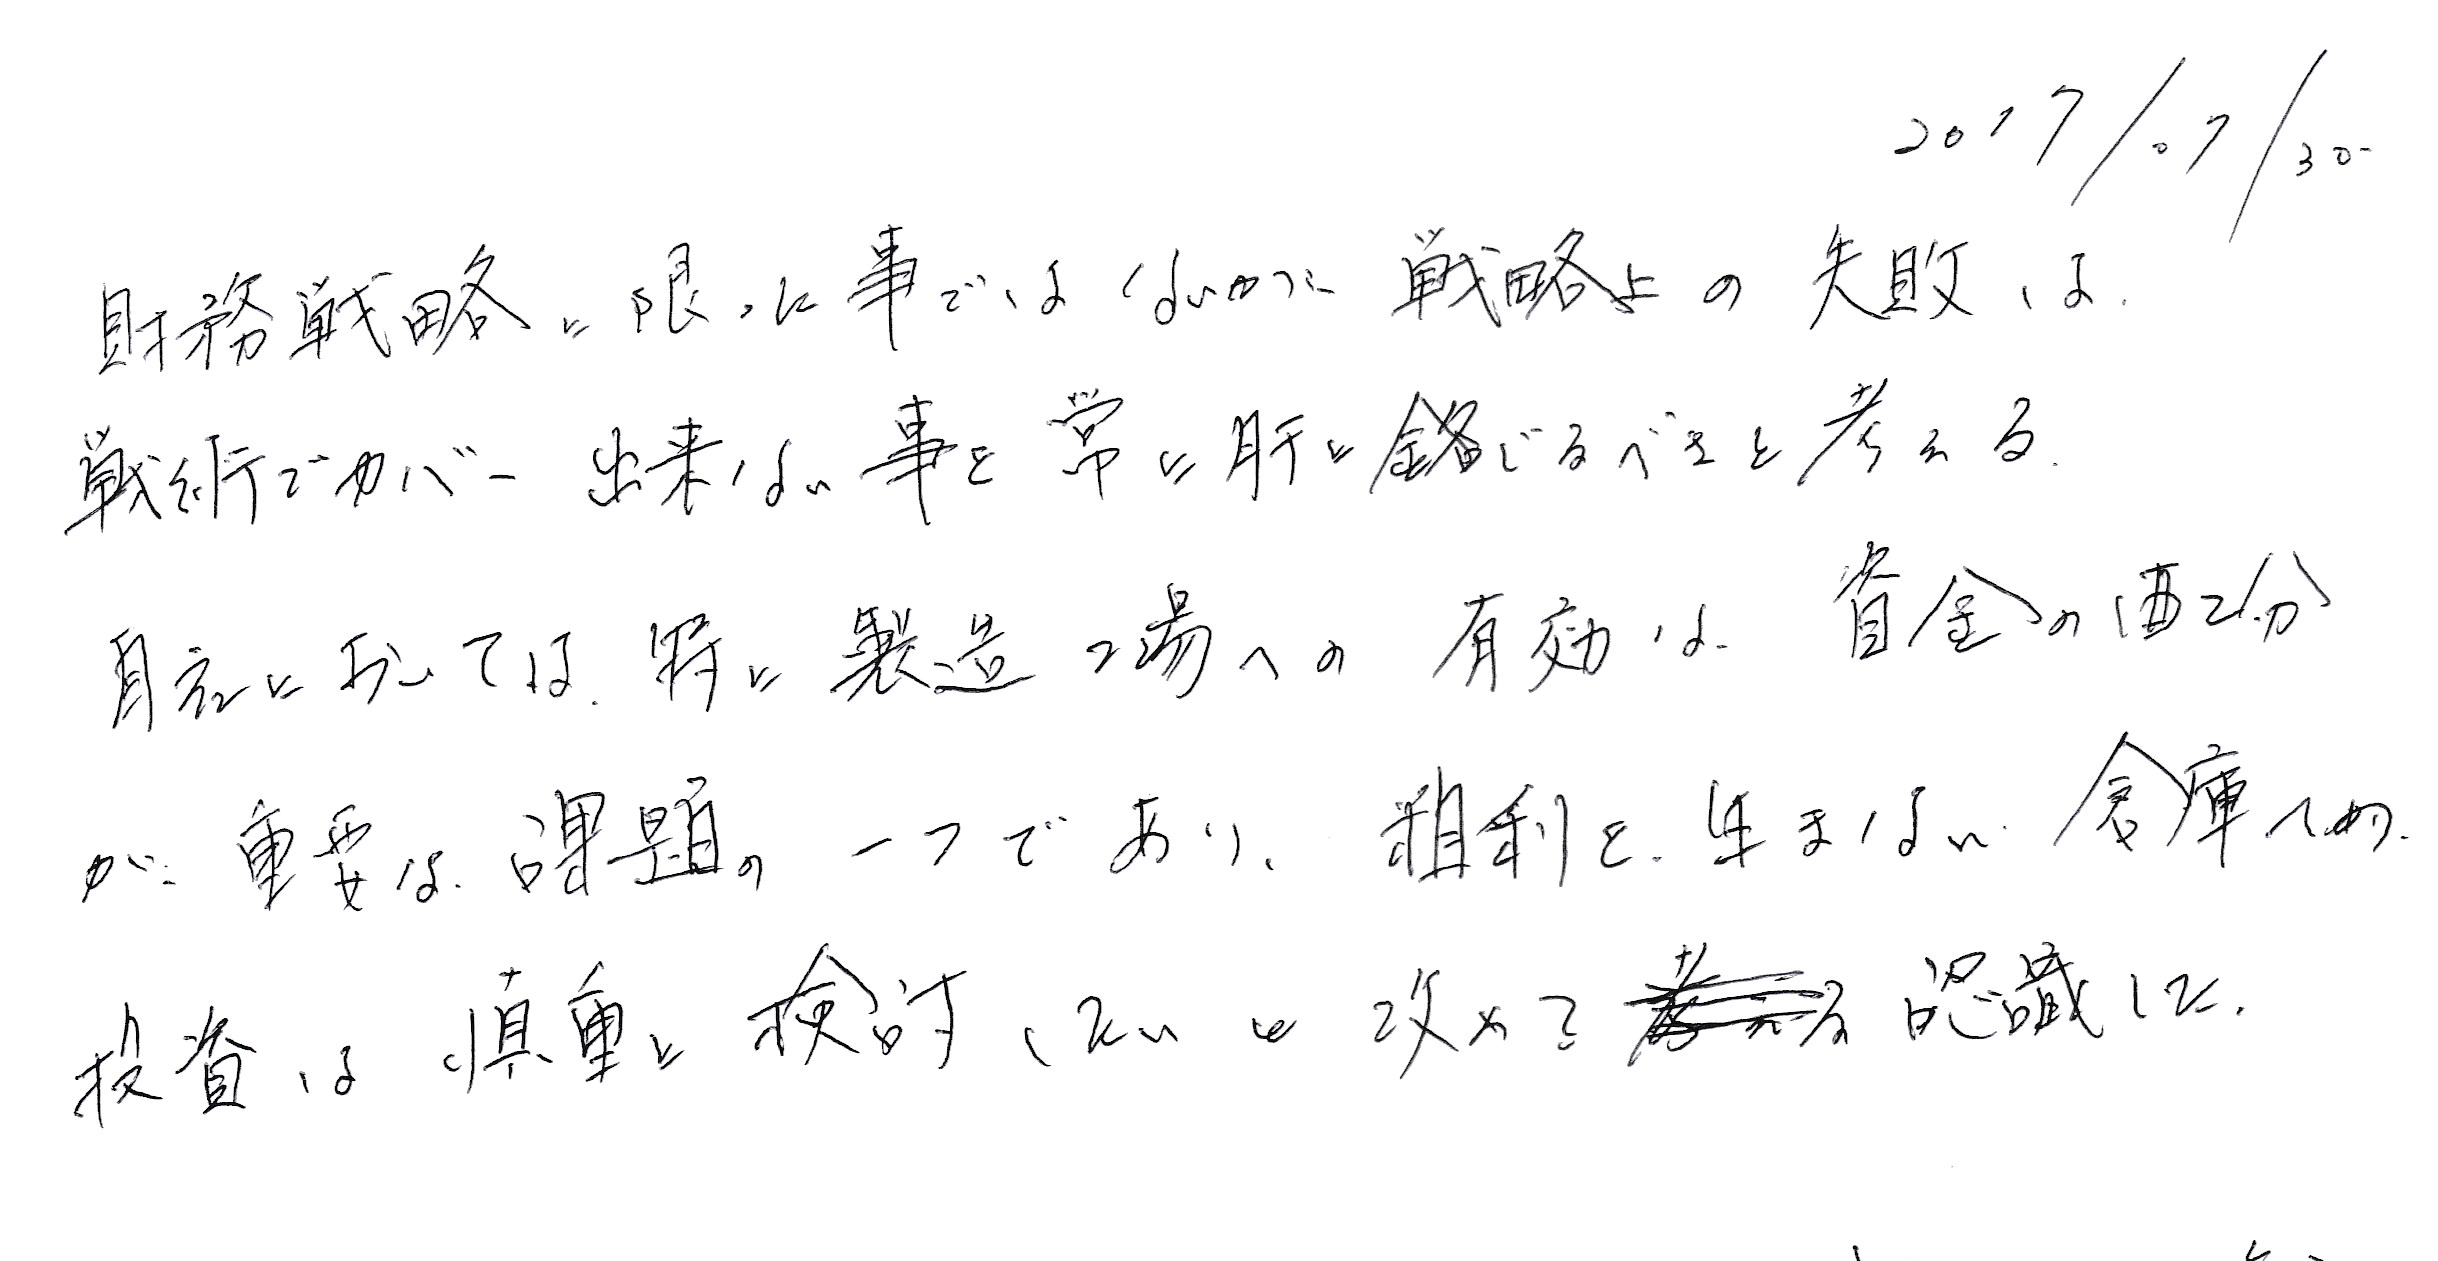 2017/07/30
財務戦略に限った事ではないが、戦略上の失敗は、
戦術でカバー出来ない事を常に肝に銘じるべきと考える。
自社においては、特に製造工場への有効な資金の配分
が重要な課題の一つであり、粗利を生まない倉庫への
投資は慎重に検討したいと改めて認識した。